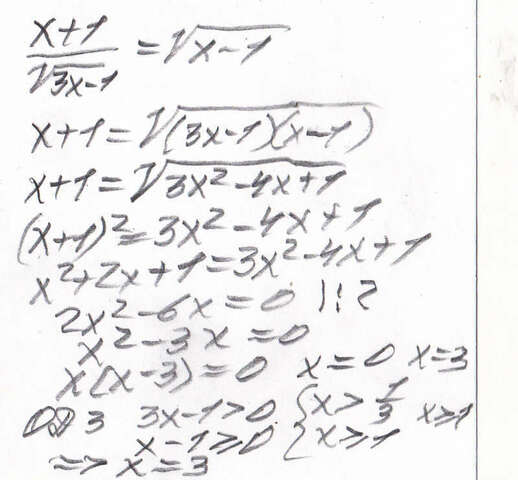 x+1 / √3x-1 = √x-1
x+1 = √(3x-1)(x-1)
x+1 = √3x²-4x+1
(x+1)² = 3x²-4x+1
x²+2x+1 = 3x²-4x+1
2x²-6x = 0 |:2
x²-3x = 0
x(x-3) = 0 x=0 x=3
ОДЗ 3x-1>0 { x > 1/3 x≥1
x-1≥0 { x≥1
=> x=3